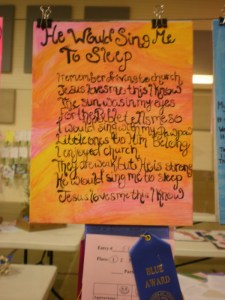 He Would Sing Me
To Sleep
I remember driving to church
Jesus loves me this I know
The sun was in my eyes
For the bible tells me so
I would sing with my
Little ones to Him belong
I enjoyed church
They are weak but He is strong
he would sing me to sleep
Jesus loves me this I know
BLUE
AWARD